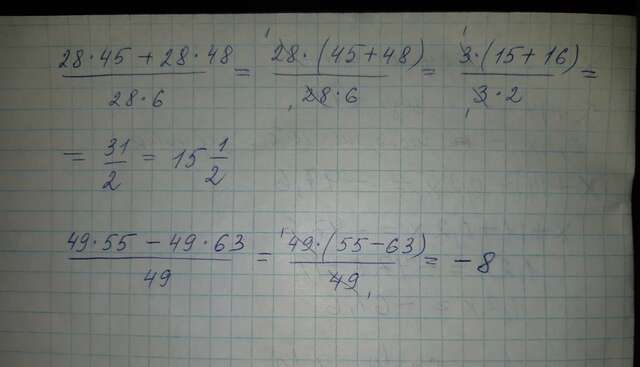 (28·45 + 28·48)/(28·6) = (28·(45+48))/(28·6) = (3·(15+16))/(3·2) =
= 31/2 = 15 1/2
(49·55 − 49·63)/49 = (49·(55−63))/49 = −8